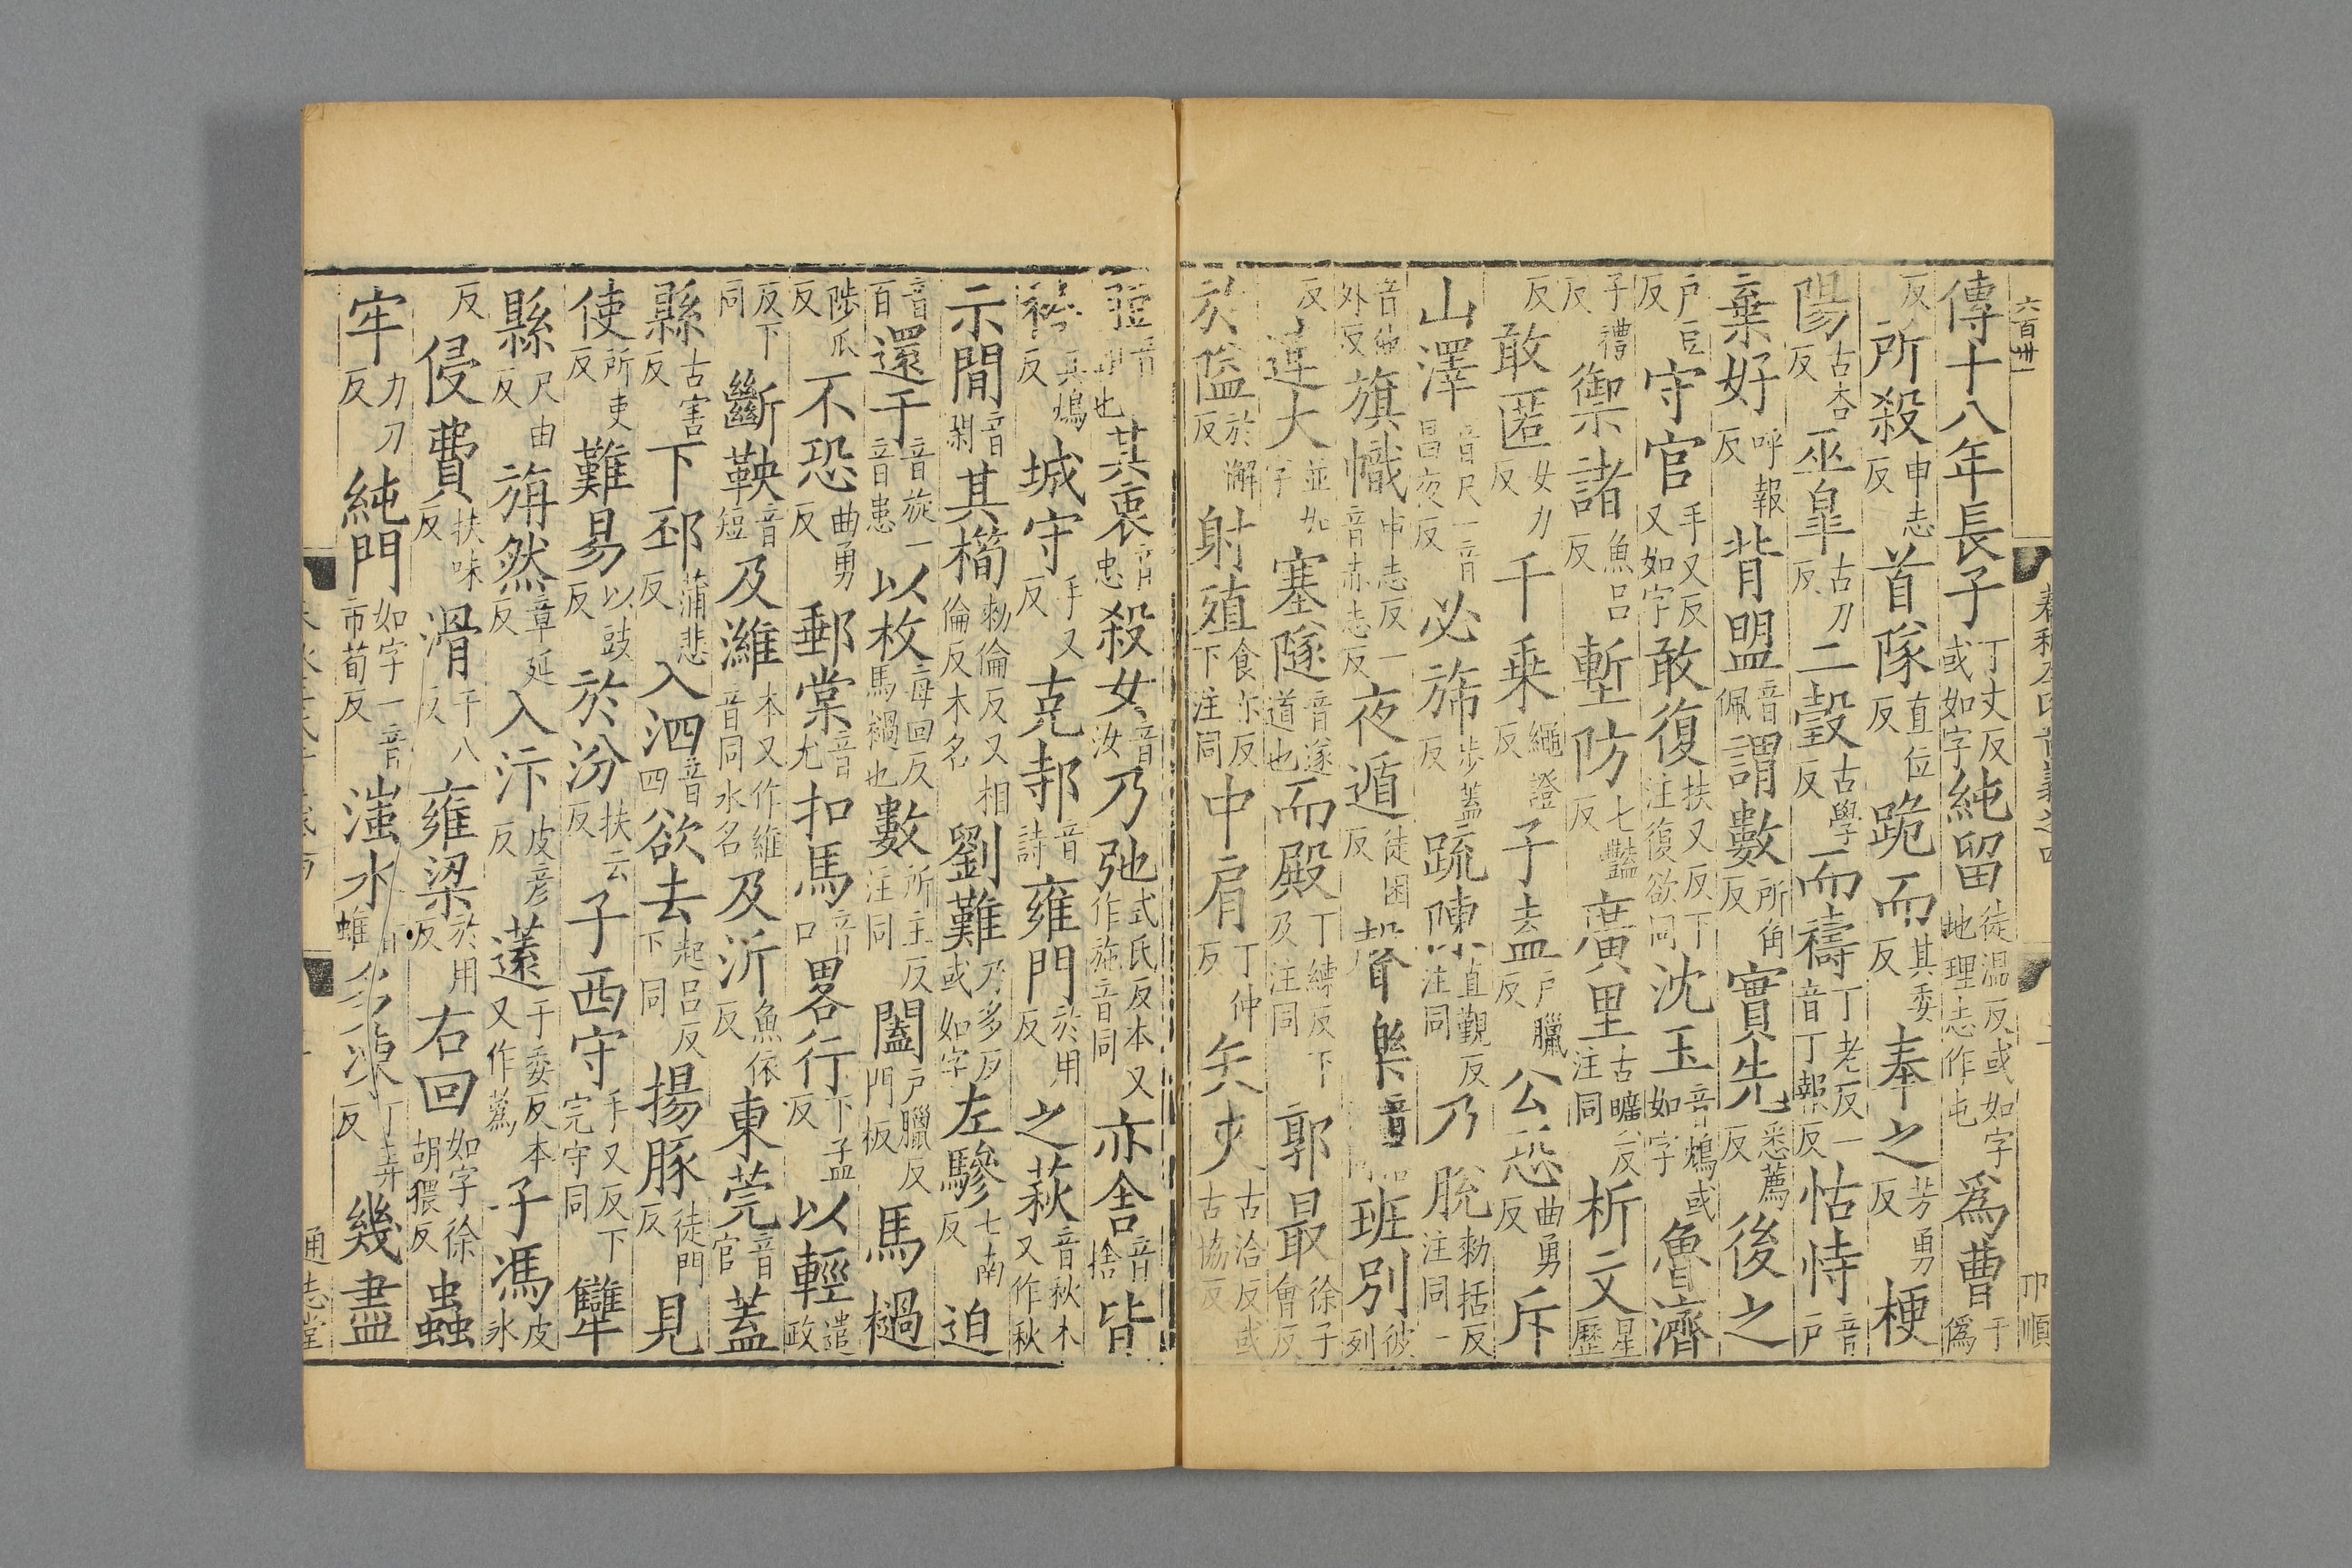 六百卅一
傳十八年長子丁丈反或如字純留徒溫反或如字地理志作屯爲曹于僞
反所殺申志反首隊直位反跪而其委反奉之芳勇反梗
陽古杏反巫皐古刀反二瑴古學反而禱丁老反一音丁報反怙恃音戶
棄好呼報反背盟音佩謂數所角反實先悉薦反後之
戶豆反守官手又反又如字敢復扶又反下注復欲同沈玉音鴆或如字魯濟
子禮反禦諸魚呂反塹防七豔反廣里古曠反注同析文星歷
反敢匿女力反千乘繩證反子盍戶臘反公恐曲勇反斥
山澤音尺一音昌夜反必旆步蓋反疏陳直覲反注同乃脫勑括反注同一
音他外反旗幟申志反一音赤志反夜遁徒困反聲樂音班別彼列
反連大並如字塞隧音遂道也而殿丁練反下及注同郭最徐子會反
於隘於懈反射殖食亦反下注同中肩丁仲反矢夾古洽反或古協反
其衷音忠殺女音汝乃弛式氏反本又作施音同亦舍音捨皆
衿其鴆反城守手又反克邿音詩雍門於用反之萩音秋本又作秋
示閒音閑其橁勑倫反又相倫反木名劉難乃多反或如字左驂七南反迫
音百還于音旋一音患以枚每回反馬檛也數所主反注同闔戶臘反門板馬檛
陟瓜反不恐曲勇反郵棠音尤扣馬音口畧行下孟反以輕遣政
反下同斷鞅音短及濰本又作維音同水名及沂魚依反東莞音官蓋
縣古害反下邳蒲悲反入泗音四欲去起呂反下同揚豚徒門反見
使所吏反難易以豉反於汾扶云反子西守手又反下完守同犫
縣尺由反旃然章延反入汴皮彦反薳于委反本又作蒍子馮皮冰
反侵費扶味反滑于八反雍梁於用反右回如字徐胡猥反蟲
牢力刀反純門如字一音市荀反滍水雉多凍丁弄反幾盡
通志堂